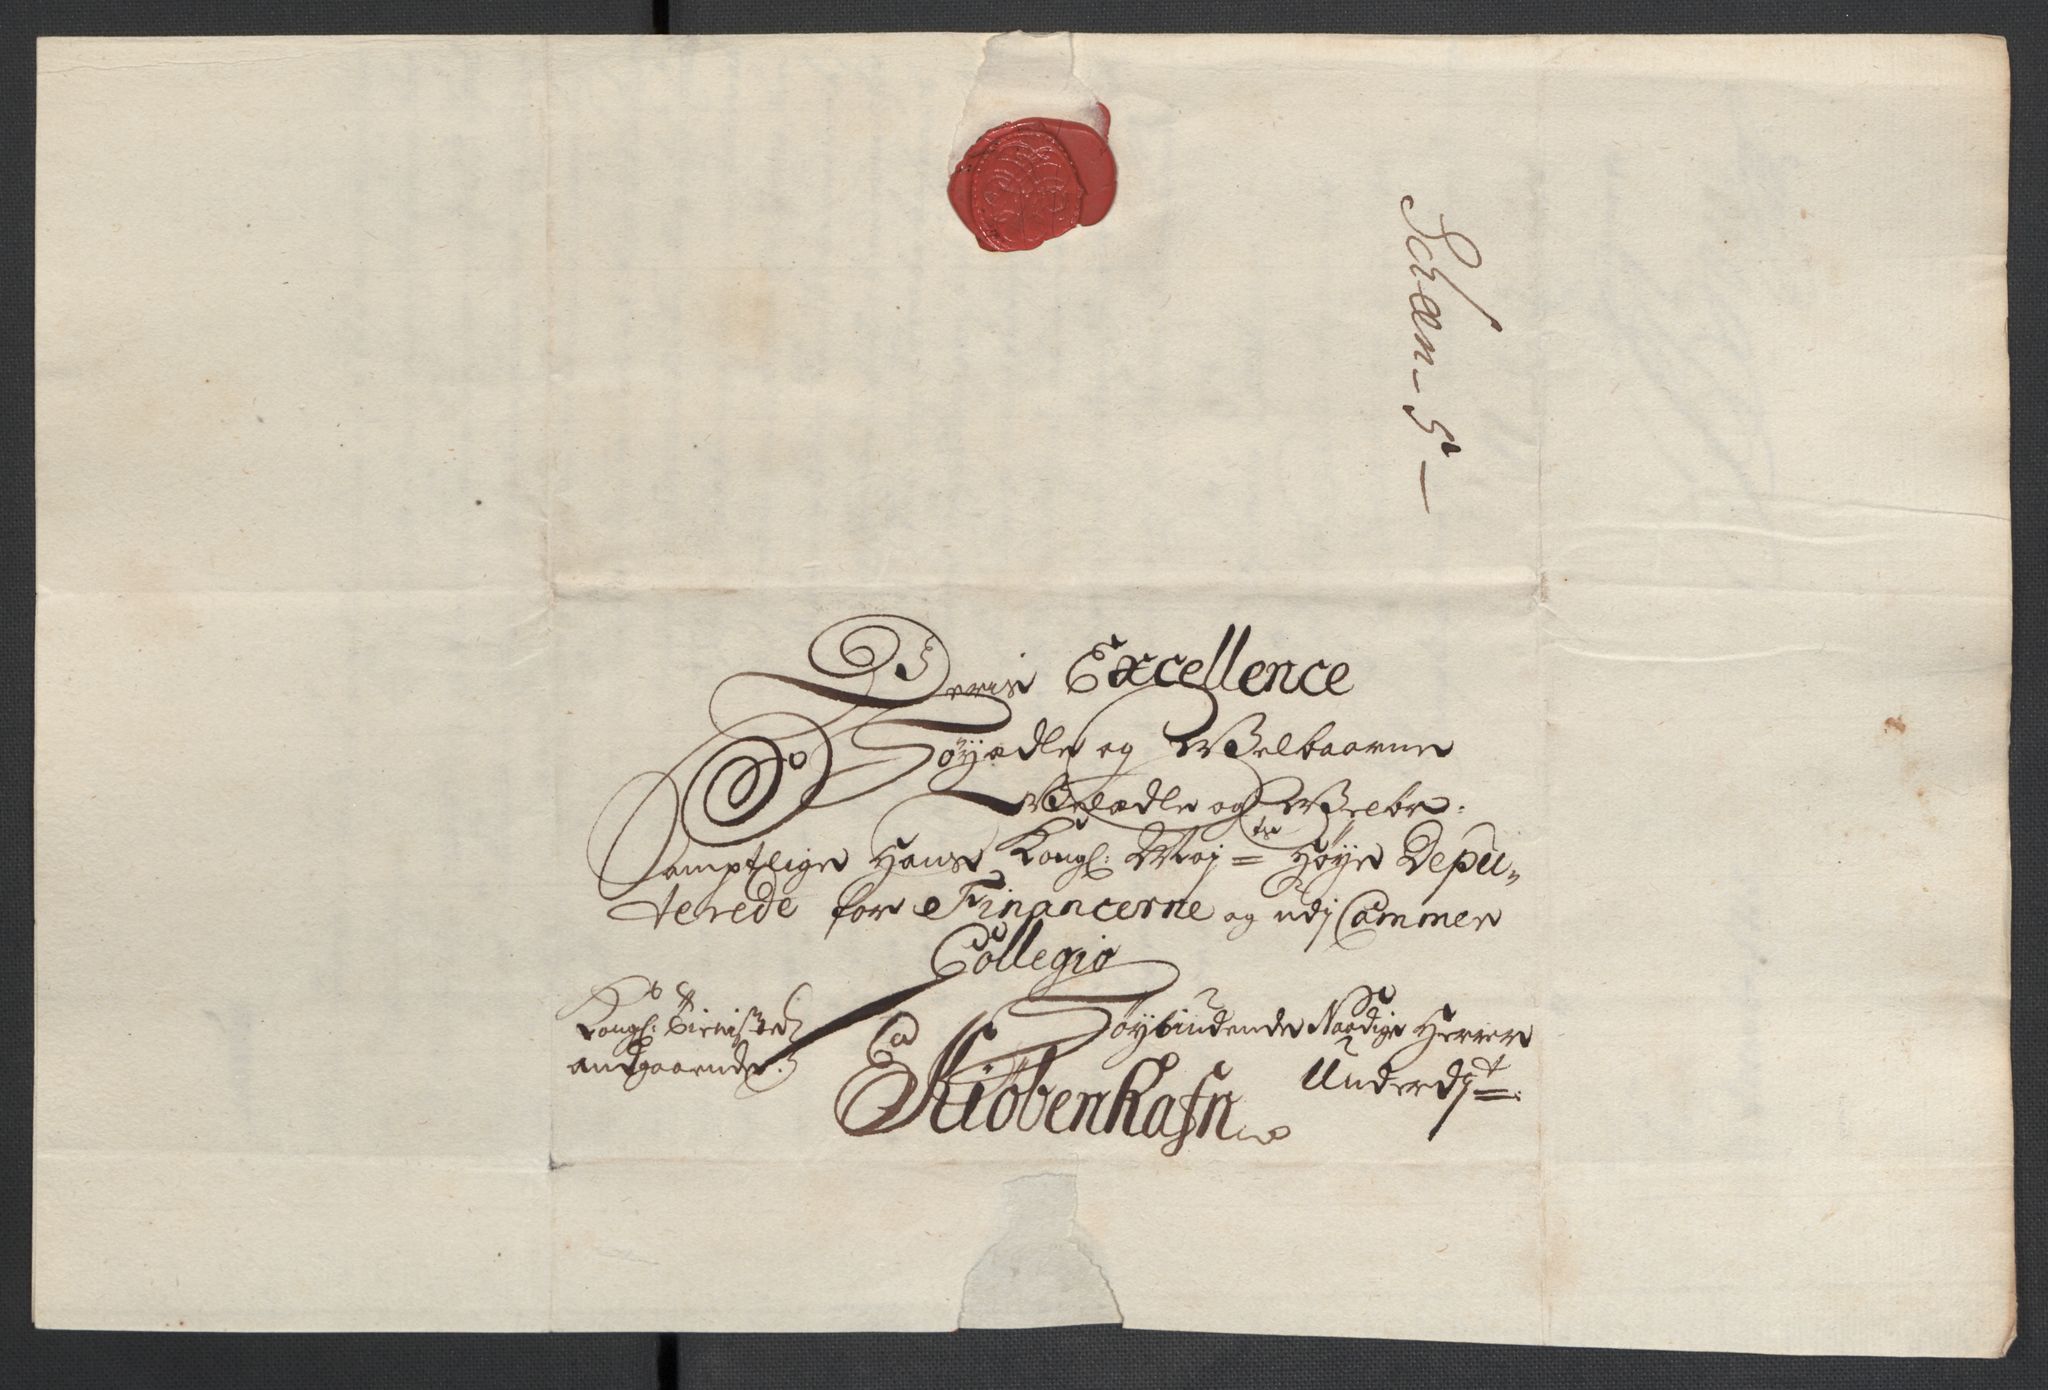 Schæn - 5 -
Deris Excellence
Höyædle og Welbaarne
Welædle og Welbr:
Samptlige Hans Kongl: Maj=ts Höye Depu„
terede for Financerne og udj Cammer
Collegio
Kongl: Tienisten
angaaende.
Höybiudende Naadige Herrer
Underd:t
Kiöbenhafn